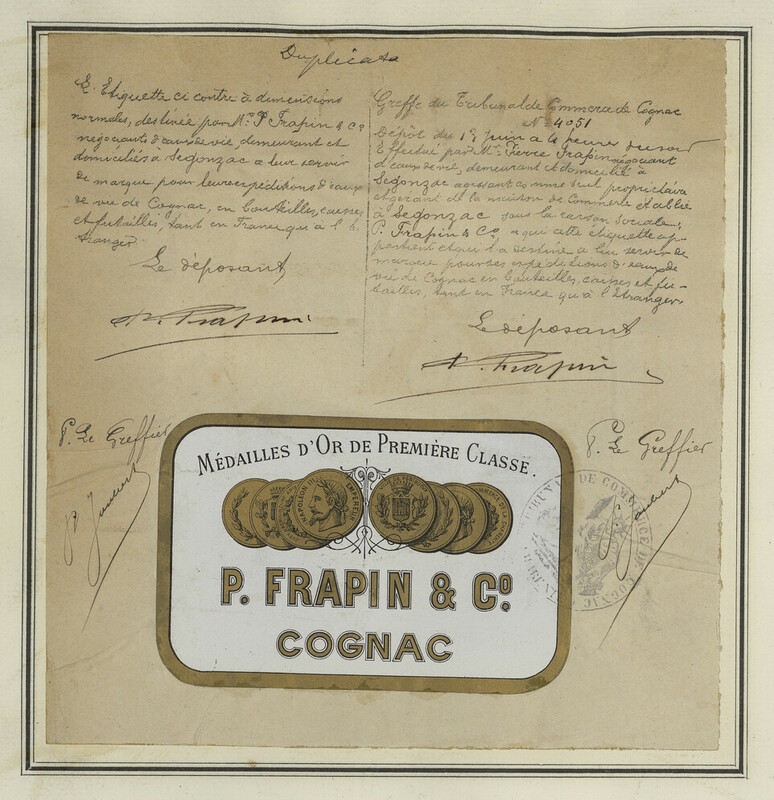 Duplicata
L'Etiquette ci contre à dimensions
normales, destinée par Mr P. Frapin & Co
négociants d'eaux de vie, demeurant et
domiciliés à Segonzac a leur servir
de marque pour leurs expéditions d'eaux
de vie de Cognac, en bouteilles, caisses
et futailles, tant en France qu'à l'É-
tranger.
Le déposant
P. Frapin
Greffe du Tribunal de Commerce de Cognac
No 4051
Dépôt du 13 Juin a heure du soir
Effectué par Mr. Pierre Frapin négociant
d'eaux de vie, demeurant et domicilié à
Segonzac agissant comme seul propriétaire
et gérant de la maison de Commerce établie
à Segonzac sous la raison sociale;
P. Frapin & Co, a qui cette étiquette ap-
partient et qui l'a destine a lui servir de
marque pour ses expéditions d'eaux de
vie de Cognac en bouteilles, caisses et fu-
tailles, tant en France qu'à l'Etranger.
Le déposant
P. Frapin
P. Le Greffier
P. Le Greffier
MÉDAILLES D'OR DE PREMIÈRE CLASSE.
NAPOLEON III EMPEREUR
P. FRAPIN & Co.
COGNAC
TRIBUNAL DE COMMERCE DE COGNAC